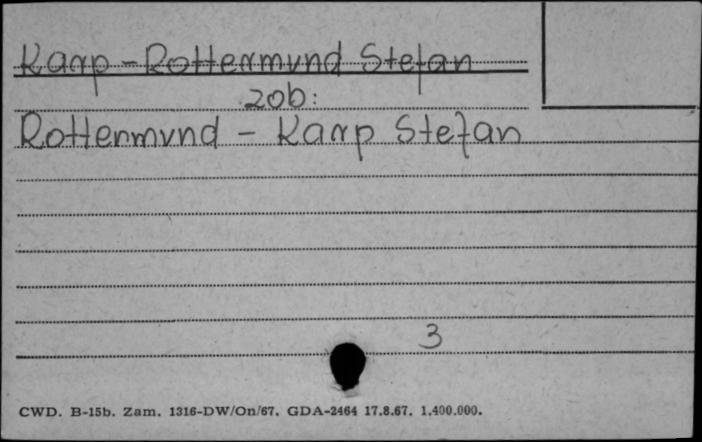 Karp-Rottermund Stefan
zob:
Rottermund - Karp Stefan
3
CWD. B-15b. Zam. 1316-DW/On/67. GDA-2464 17.8.67. 1.400.000.